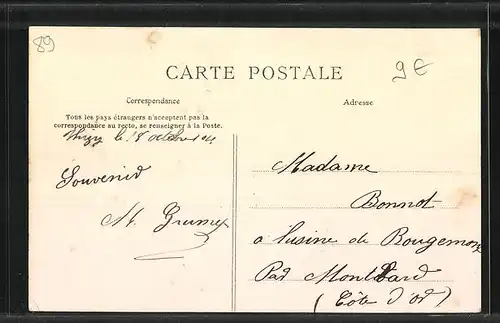 89
9€
CARTE POSTALE
Correspondance
Adresse
Tous les pays étrangers n'acceptent pas la
correspondance au recto, se renseigner à la Poste.
Thizy le 8 octobre
Souvenir
Madame
Bonnot
a l'usine de Rougemont
Par Montbard
(Côte d'or)